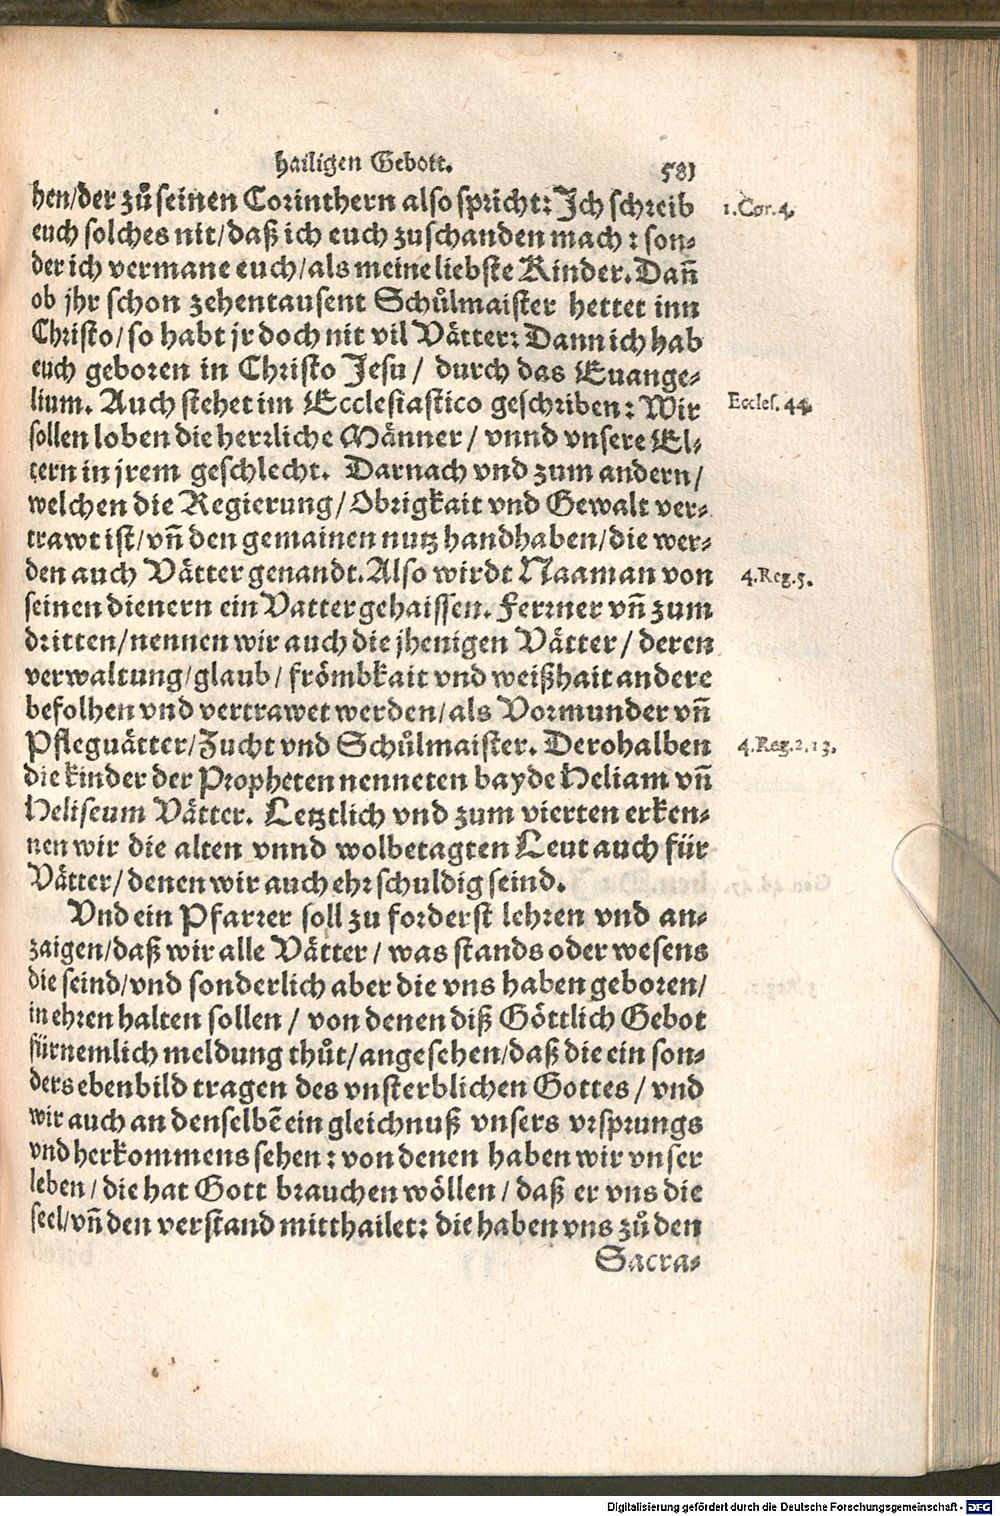 hailigen Gebott.
581
hen/der zů seinen Corinthern also spricht: Ich schreib
1.Cor.4.
euch solches nit/daß ich euch zuschanden mach: son-
der ich vermane euch/als meine liebste Kinder. Dañ
ob jhr schon zehentausent Schůlmaister hettet inn
Christo/so habt jr doch nit vil Vätter: Dann ich hab
euch geboren in Christo Jesu/ durch das Euange-
lium. Auch stehet im Ecclesiastico geschriben: Wir
Eccles. 44.
sollen loben die herzliche Männer/ vnnd vnsere El-
tern in jrem geschlecht. Darnach vnd zum andern/
welchen die Regierung/Obrigkait vnd Gewalt ver-
trawt ist/vñ den gemainen nutz handhaben/die wer-
den auch Vätter genandt. Also wirdt Naaman von
4.Reg.5.
seinen dienern ein Vatter gehaissen. Ferrner vñ zum
dritten/nennen wir auch die jhenigen Vätter/ deren
verwaltung/glaub/ frömbkait vnd weißhait andere
befolhen vnd vertrawet werden/als Vormunder vñ
Pfleguätter/Zucht vnd Schůlmaister. Derohalben
4.Reg.2.13.
die kinder der Propheten nenneten bayde Heliam vñ
Heliseum Vätter. Letztlich vnd zum vierten erken-
nen wir die alten vnnd wolbetagten Leut auch für
Vätter/ denen wir auch ehr schuldig seind.
Vnd ein Pfarrer soll zu forderst lehren vnd an-
zaigen/daß wir alle Vätter/ was stands oder wesens
die seind/vnd sonderlich aber die vns haben geboren/
in ehren halten sollen/ von denen diß Göttlich Gebot
fürnemlich meldung thůt/angesehen/daß die ein son-
ders ebenbild tragen des vnsterblichen Gottes/ vnd
wir auch an denselbẽ ein gleichnuß vnsers vrsprungs
vnd herkommens sehen: von denen haben wir vnser
leben/ die hat Gott brauchen wöllen/ daß er vns die
seel/vñ den verstand mitthailet: die haben vns zů den
Sacra-
Digitalisierung gefördert durch die Deutsche Forschungsgemeinschaft - DFG